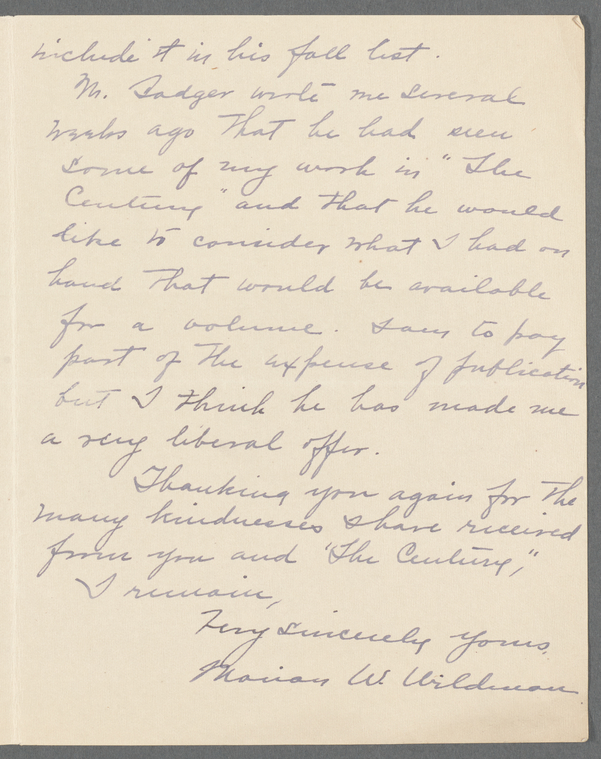 include it in his fall list.
Mr. Badger wrote me several
weeks ago that he had seen
some of my work in "The
Century" and that he would
like to consider what I had on
hand that would be available
for a volume. I am to pay
part of the expense of publication
but I think he has made me
a very liberal offer.
Thanking you again for the
many kindnesses I have received
from you and "The Century,"
I remain,
Very Sincerely Yours,
Marian W. Wildman